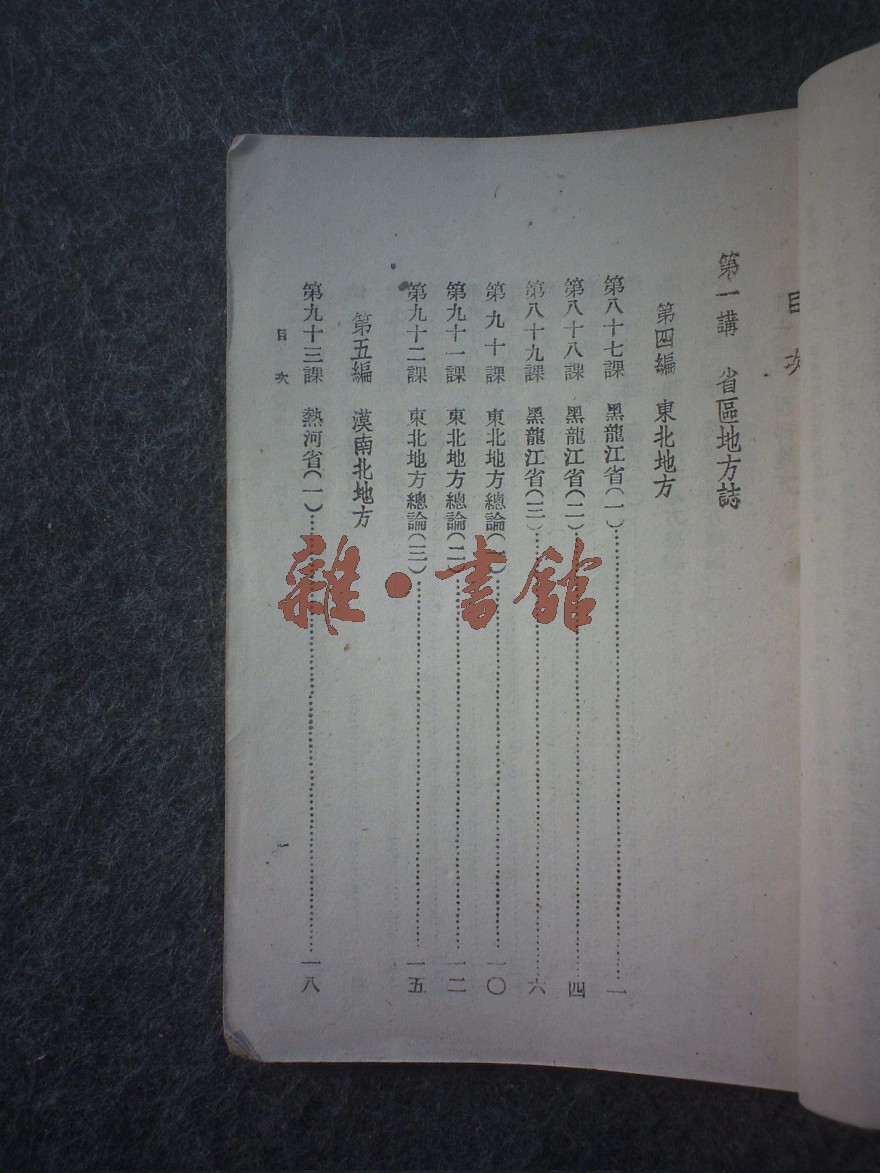 目次
第一講　省區地方誌
第四編　東北地方
第八十七課　黑龍江省(一)…一
第八十八課　黑龍江省(二)…四
第八十九課　黑龍江省(三)…六
第九十課　東北地方總論(…一〇
第九十一課　東北地方總論(二)…一二
第九十二課　東北地方總論(三)…一五
第五編　漠南北地方
第九十三課　熱河省(一)…一八
目次
一
雜·書館